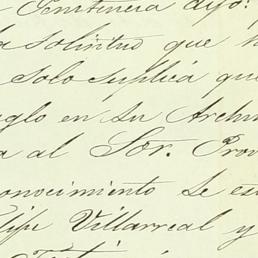 Penitencia dijo:
la solicitud que h
Solo suplica que
glo en su Archiv
a al Sor. Prov
onocimiento se es
lipe Villarreal y